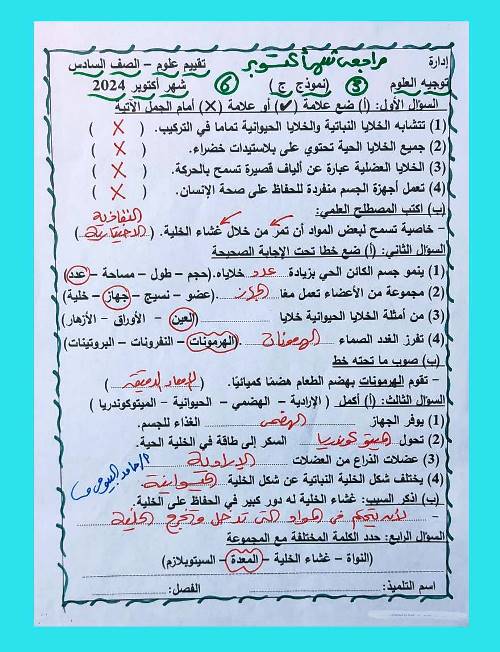 إدارة مراجعة شهر أكتوبر تقييم علوم – الصف السادس
توجيه العلوم (نموذج ج) شهر أكتوبر 2024
السؤال الأول: (أ) ضع علامة (✓) أو علامة (X) أمام الجمل الآتية
(1) تتشابه الخلايا النباتية والخلايا الحيوانية تماما في التركيب. ( X )
(2) جميع الخلايا الحية تحتوي على بلاستيدات خضراء. ( X )
(3) الخلايا العضلية عبارة عن ألياف قصيرة تسمح بالحركة. ( X )
(4) تعمل أجهزة الجسم منفردة للحفاظ على صحة الإنسان. ( X )
(ب) اكتب المصطلح العلمي:
– خاصية تسمح لبعض المواد أن تمر من خلال غشاء الخلية. ( النفاذية الاختيارية )
السؤال الثاني: (أ) ضع خطا تحت الإجابة الصحيحة
(1) ينمو جسم الكائن الحي بزيادة عدد خلاياه. (حجم – طول – مساحة – عدد)
(2) مجموعة من الأعضاء تعمل معا الجهاز. (عضو – نسيج – جهاز – خلية)
(3) من أمثلة الخلايا الحيوانية خلايا (العين – الأوراق – الأزهار)
(4) تفرز الغدد الصماء الهرمونات. (الهرمونات – النفرونات – البروتينات)
(ب) صوب ما تحته خط
– تقوم الهرمونات بهضم الطعام هضما كميائيا. ( الأمعاء الدقيقة )
السؤال الثالث: (أ) أكمل ( الإرادية – الهضمي – الحيوانية – الميتوكوندريا )
(1) يوفر الجهاز الهضمي الغذاء للجسم.
(2) تحول الميتوكوندريا السكر إلى طاقة في الخلية الحية.
(3) عضلات الذراع من العضلات الإرادية
(4) يختلف شكل الخلية النباتية عن شكل الخلية الحيوانية
(ب) اذكر السبب: غشاء الخلية له دور كبير في الحفاظ على الخلية.
– لأنه يتحكم في المواد التي تدخل وتخرج الخلية
السؤال الرابع: حدد الكلمة المختلفة مع المجموعة
(النواة – غشاء الخلية – المعدة – السيتوبلازم)
اسم التلميذ: الفصل: